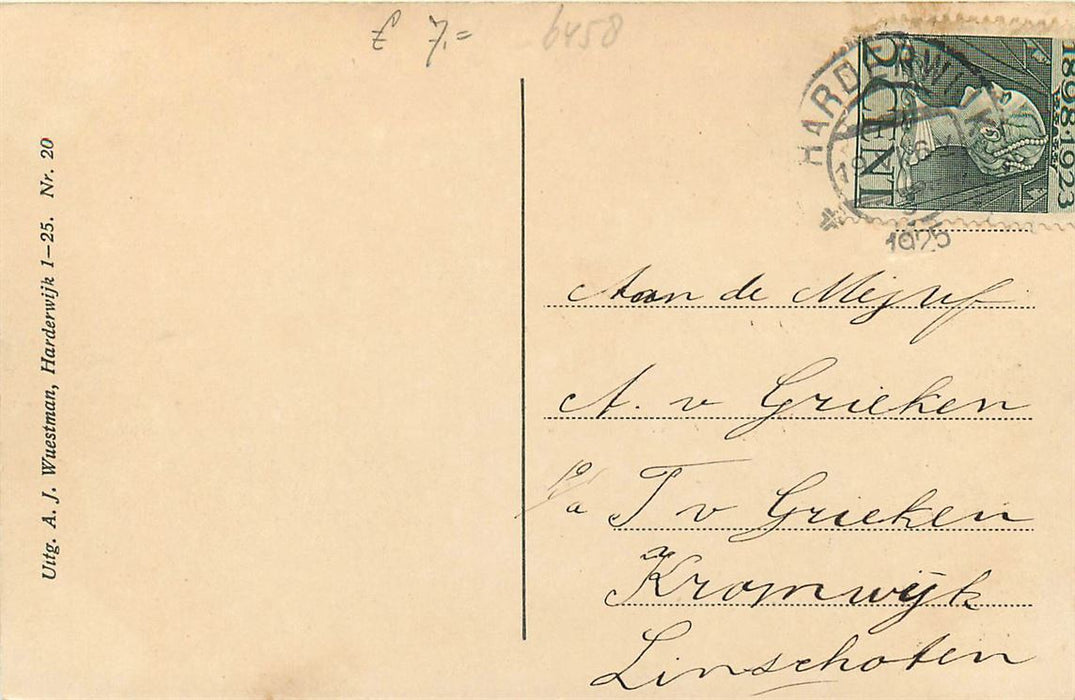 f 7.= 6458
Uitg. A. J. Wuestman, Harderwijk 1-25. Nr. 20
1898·1923
2 CENT
HARDERWIJK
1925
Aan de Mejuf
A. v Grieken
p/a T v Grieken
Kromwijk
Linschoten